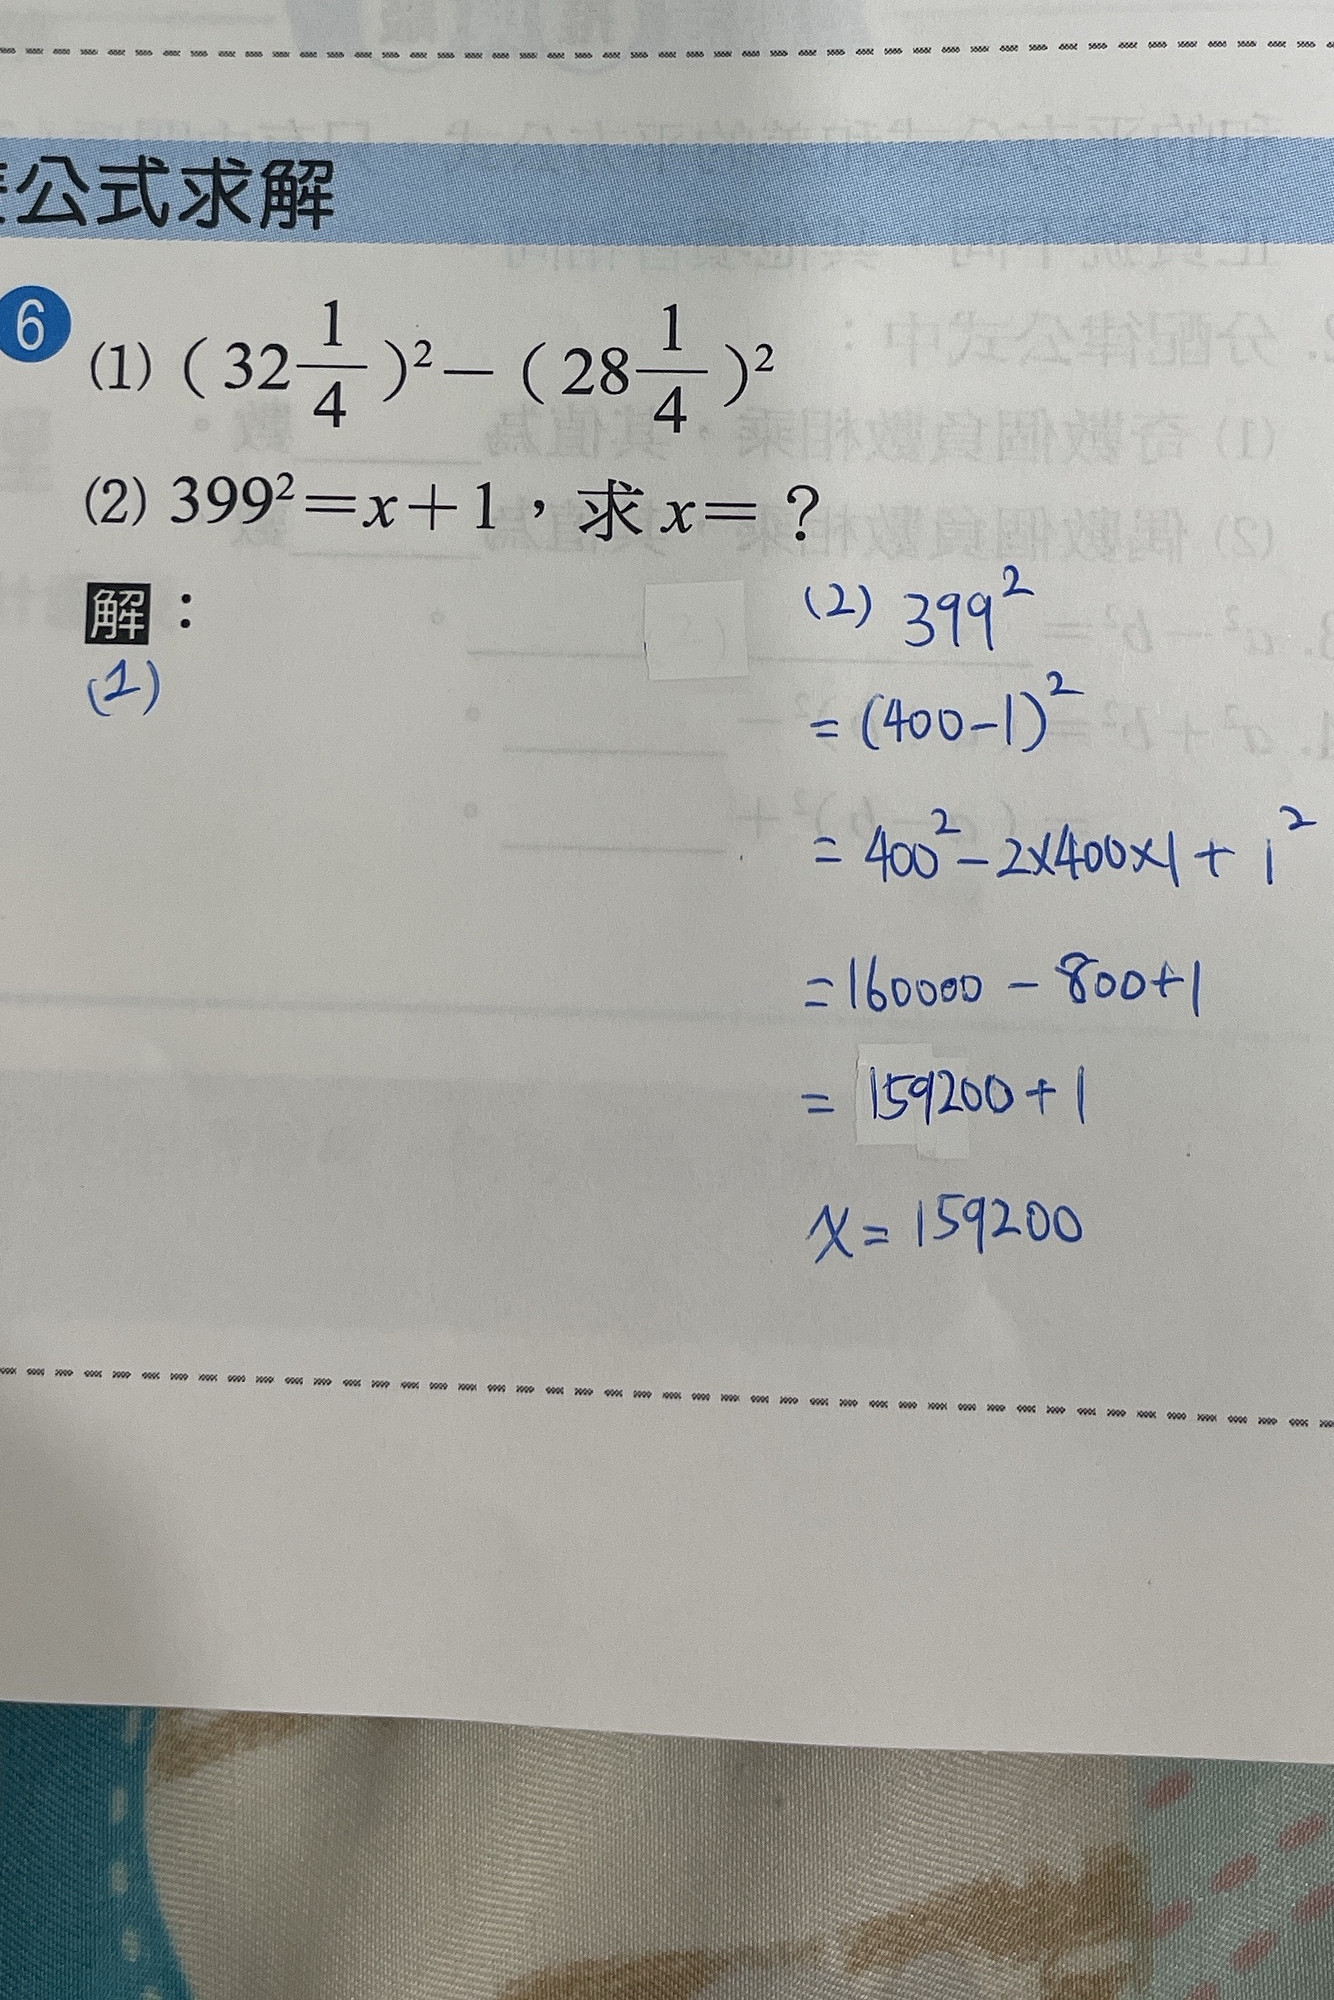 公式求解
6
(1) (32 1/4)² − (28 1/4)²
(2) 399² = x + 1，求 x = ？
解：
(1)
(2) 399²
= (400-1)²
= 400² - 2×400×1 + 1²
= 160000 - 800 + 1
= 159200 + 1
x = 159200